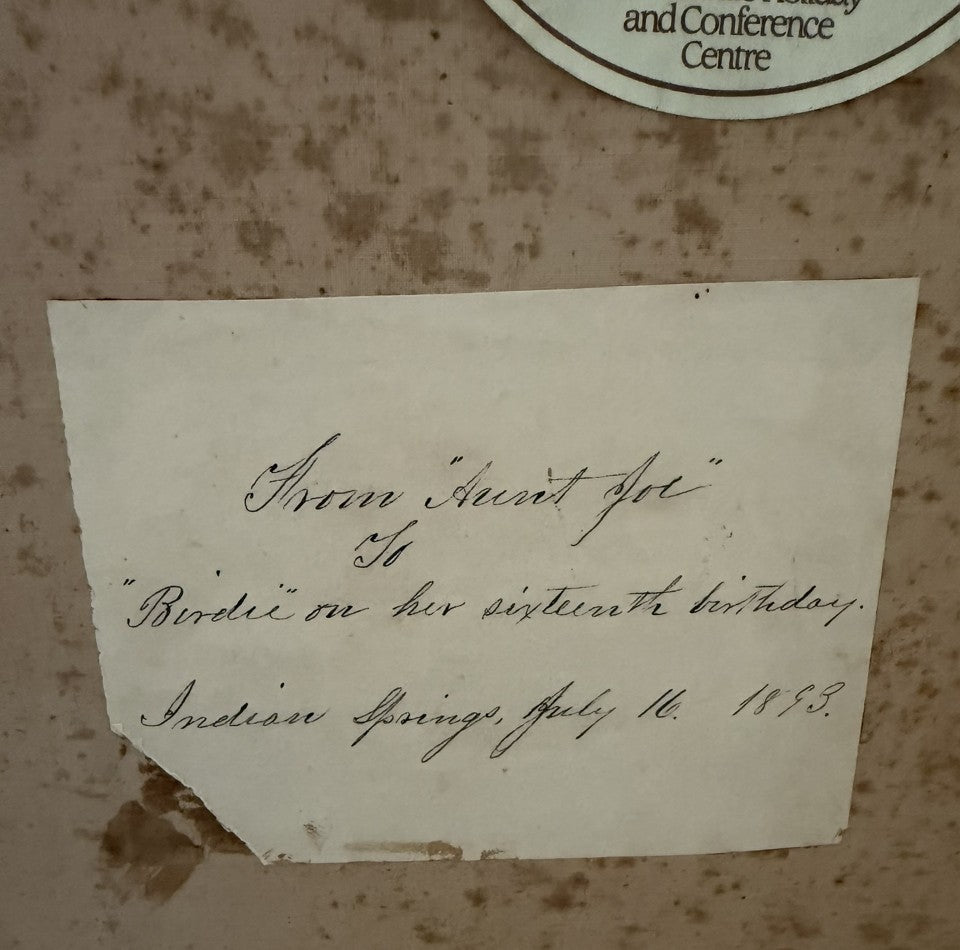 and Conference
Centre
From "Aunt Joe"
To
"Birdie" on her sixteenth birthday.
Indian Springs, July 16. 1893.